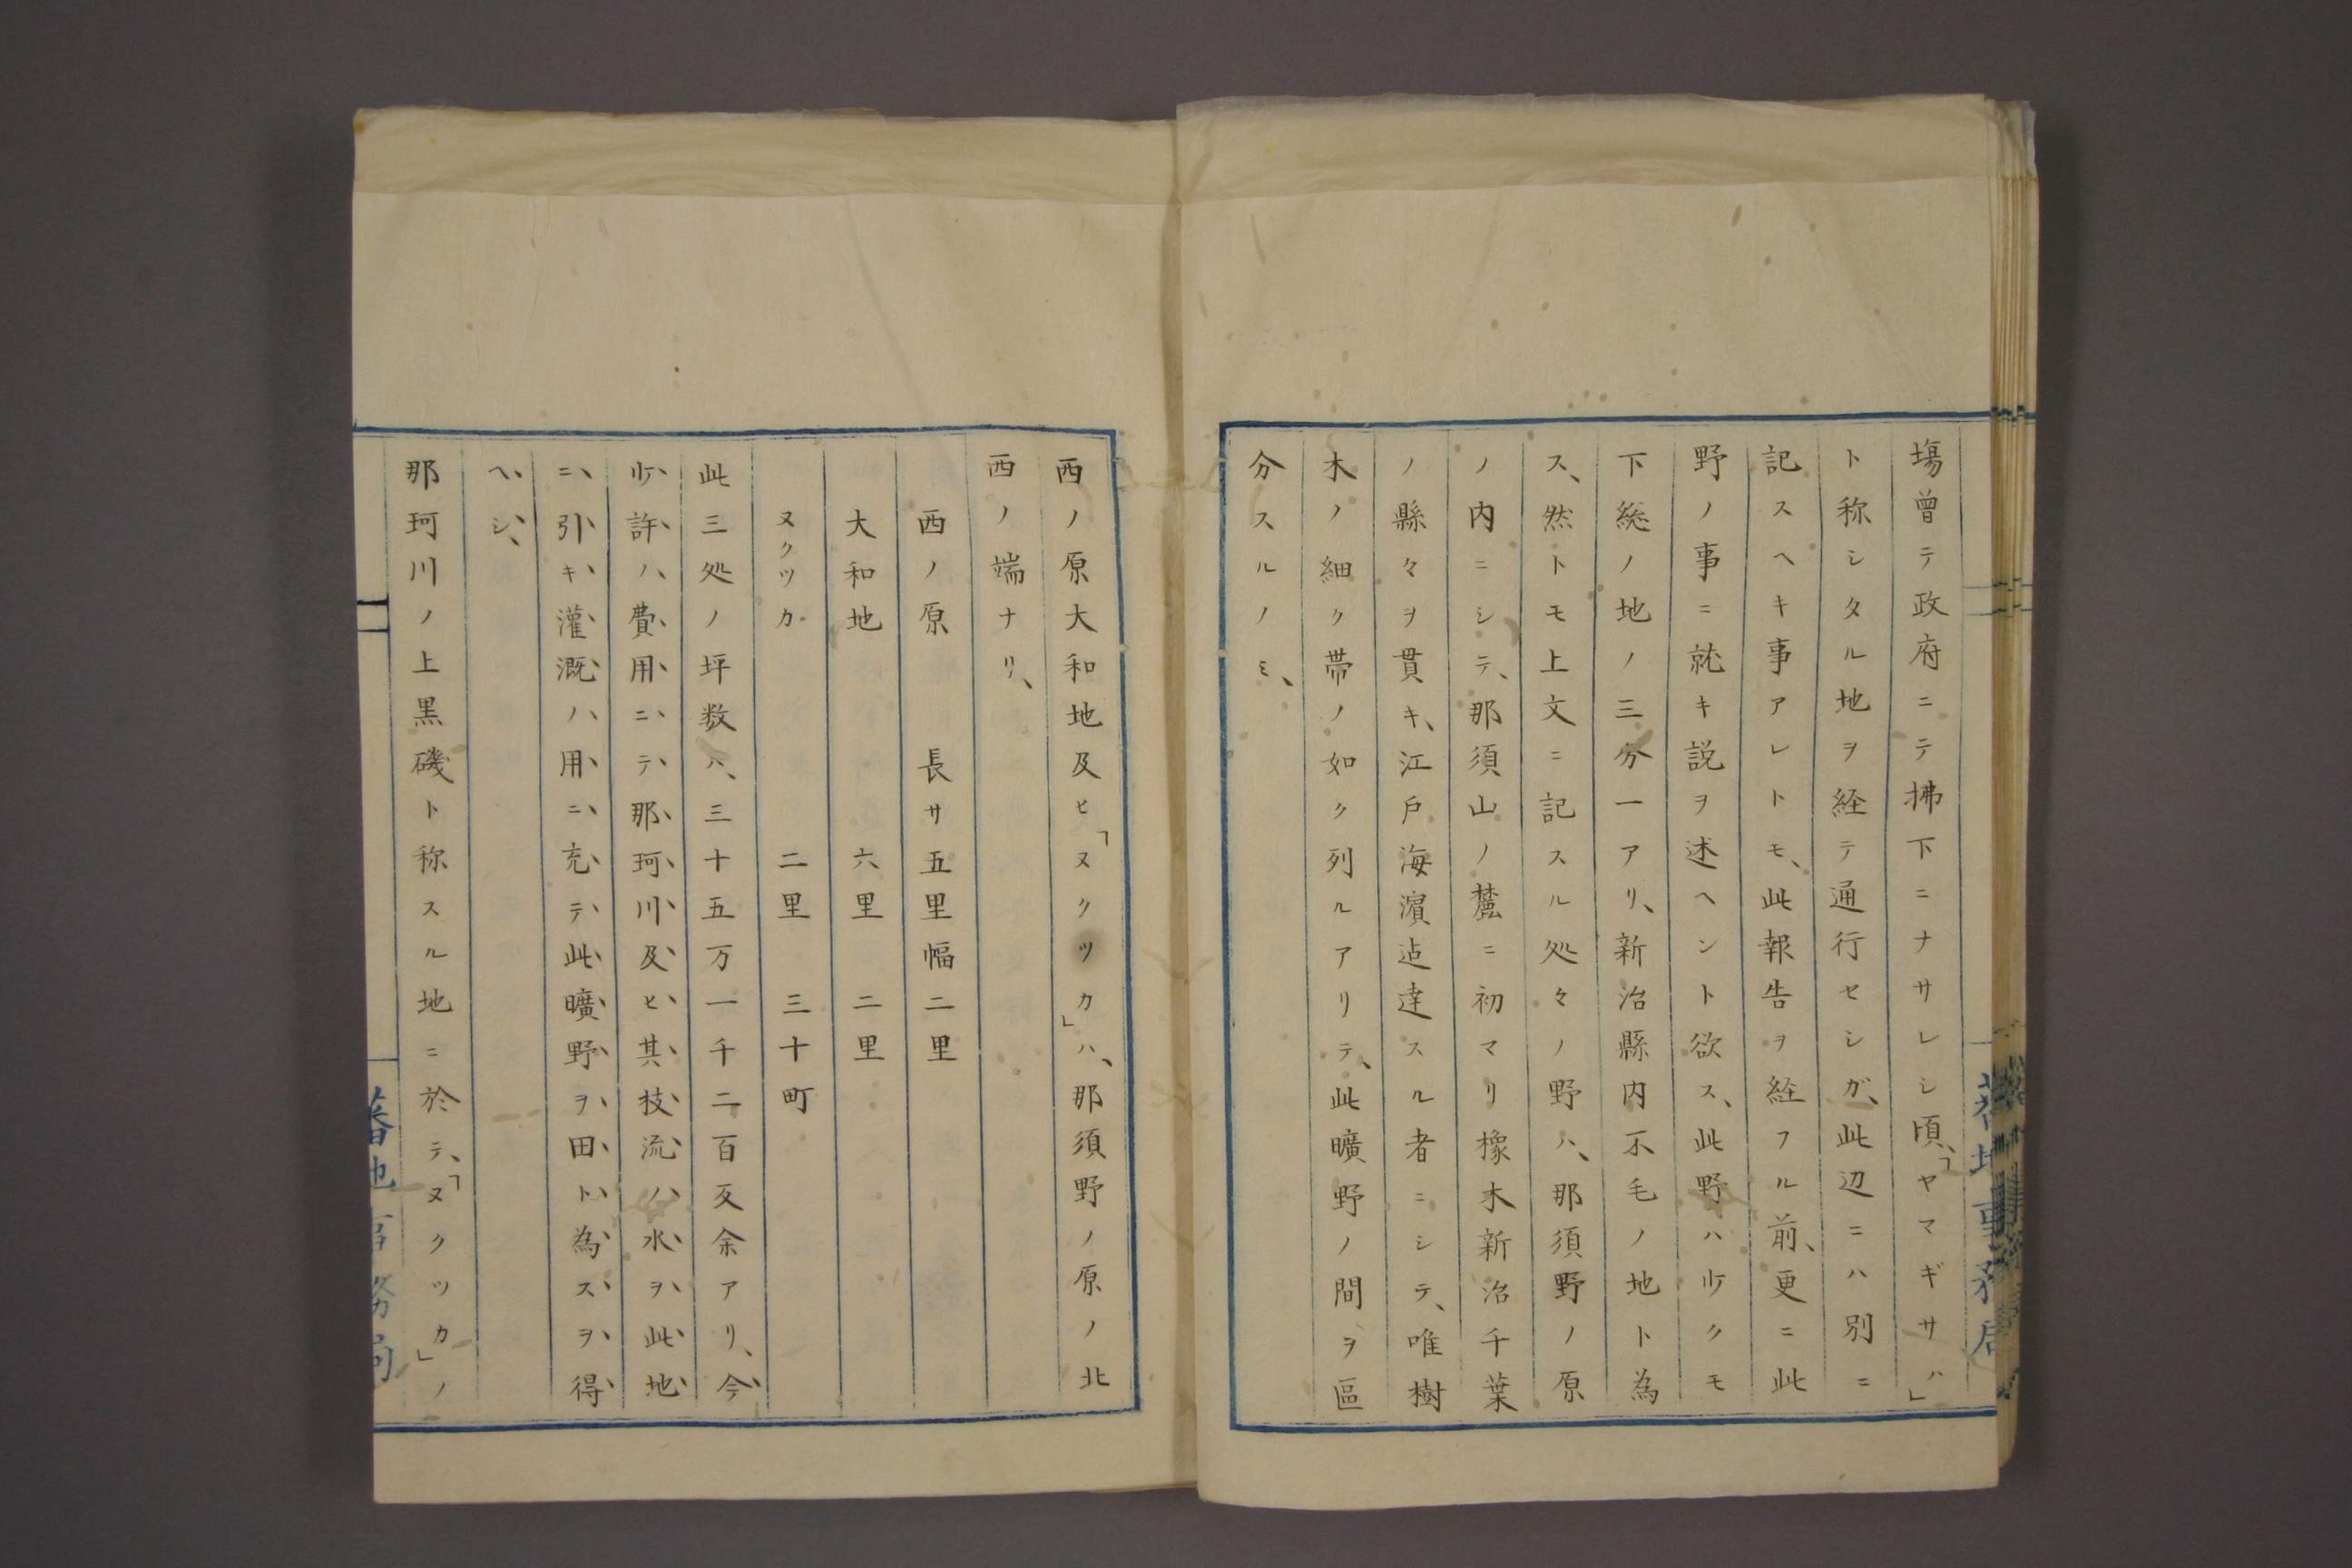 場曾テ政府ニテ拂下ニナサレシ頃、「ヤマギサハ」
ト称シタル地ヲ経テ通行セシガ、此辺ニハ別ニ
記スヘキ事アレトモ、此報告ヲ経フル前、更ニ此
野ノ事ニ就キ説ヲ述ヘント欲ス、此野ハ少クモ
下総ノ地ノ三分一アリ、新治縣内不毛ノ地ト為
ス、然トモ上文ニ記スル処々ノ野ハ、那須野ノ原
ノ内ニシテ、那須山ノ麓ニ初マリ橡木新治千葉
ノ縣々ヲ貫キ、江戸海濵迠達スル者ニシテ、唯樹
木ノ細ク帯ノ如ク列ルアリテ、此曠野ノ間ヲ區
分スルノミ、
西ノ原大和地及ヒ「ヌクツカ」ハ、那須野ノ原ノ北
西ノ端ナリ、
西ノ原　長サ五里幅二里
大和地　六里　二里
ヌクツカ　二里　三十町
此三処ノ坪数ハ、三十五万一千二百反余アリ、今、
少、許、ノ、費、用、ニ、テ、那、珂、川、及、ヒ、其、枝、流、ノ、水、ヲ、此、地、
ニ、引、キ、灌、漑、ノ、用、ニ、充、テ、此、曠、野、ヲ、田、ト、為、ス、ヲ、得、
ヘ、シ、
那珂川ノ上黒磯ト称スル地ニ於テ、「ヌクツカ」ノ
蕃地事務局
蕃地事務局